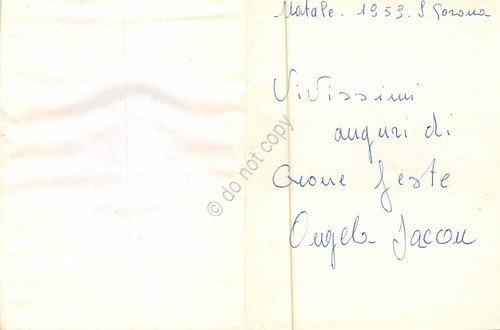 Natale. 1959. S. Corona
Vivissimi
auguri di
buone feste
Angela Jacon
© do not copy